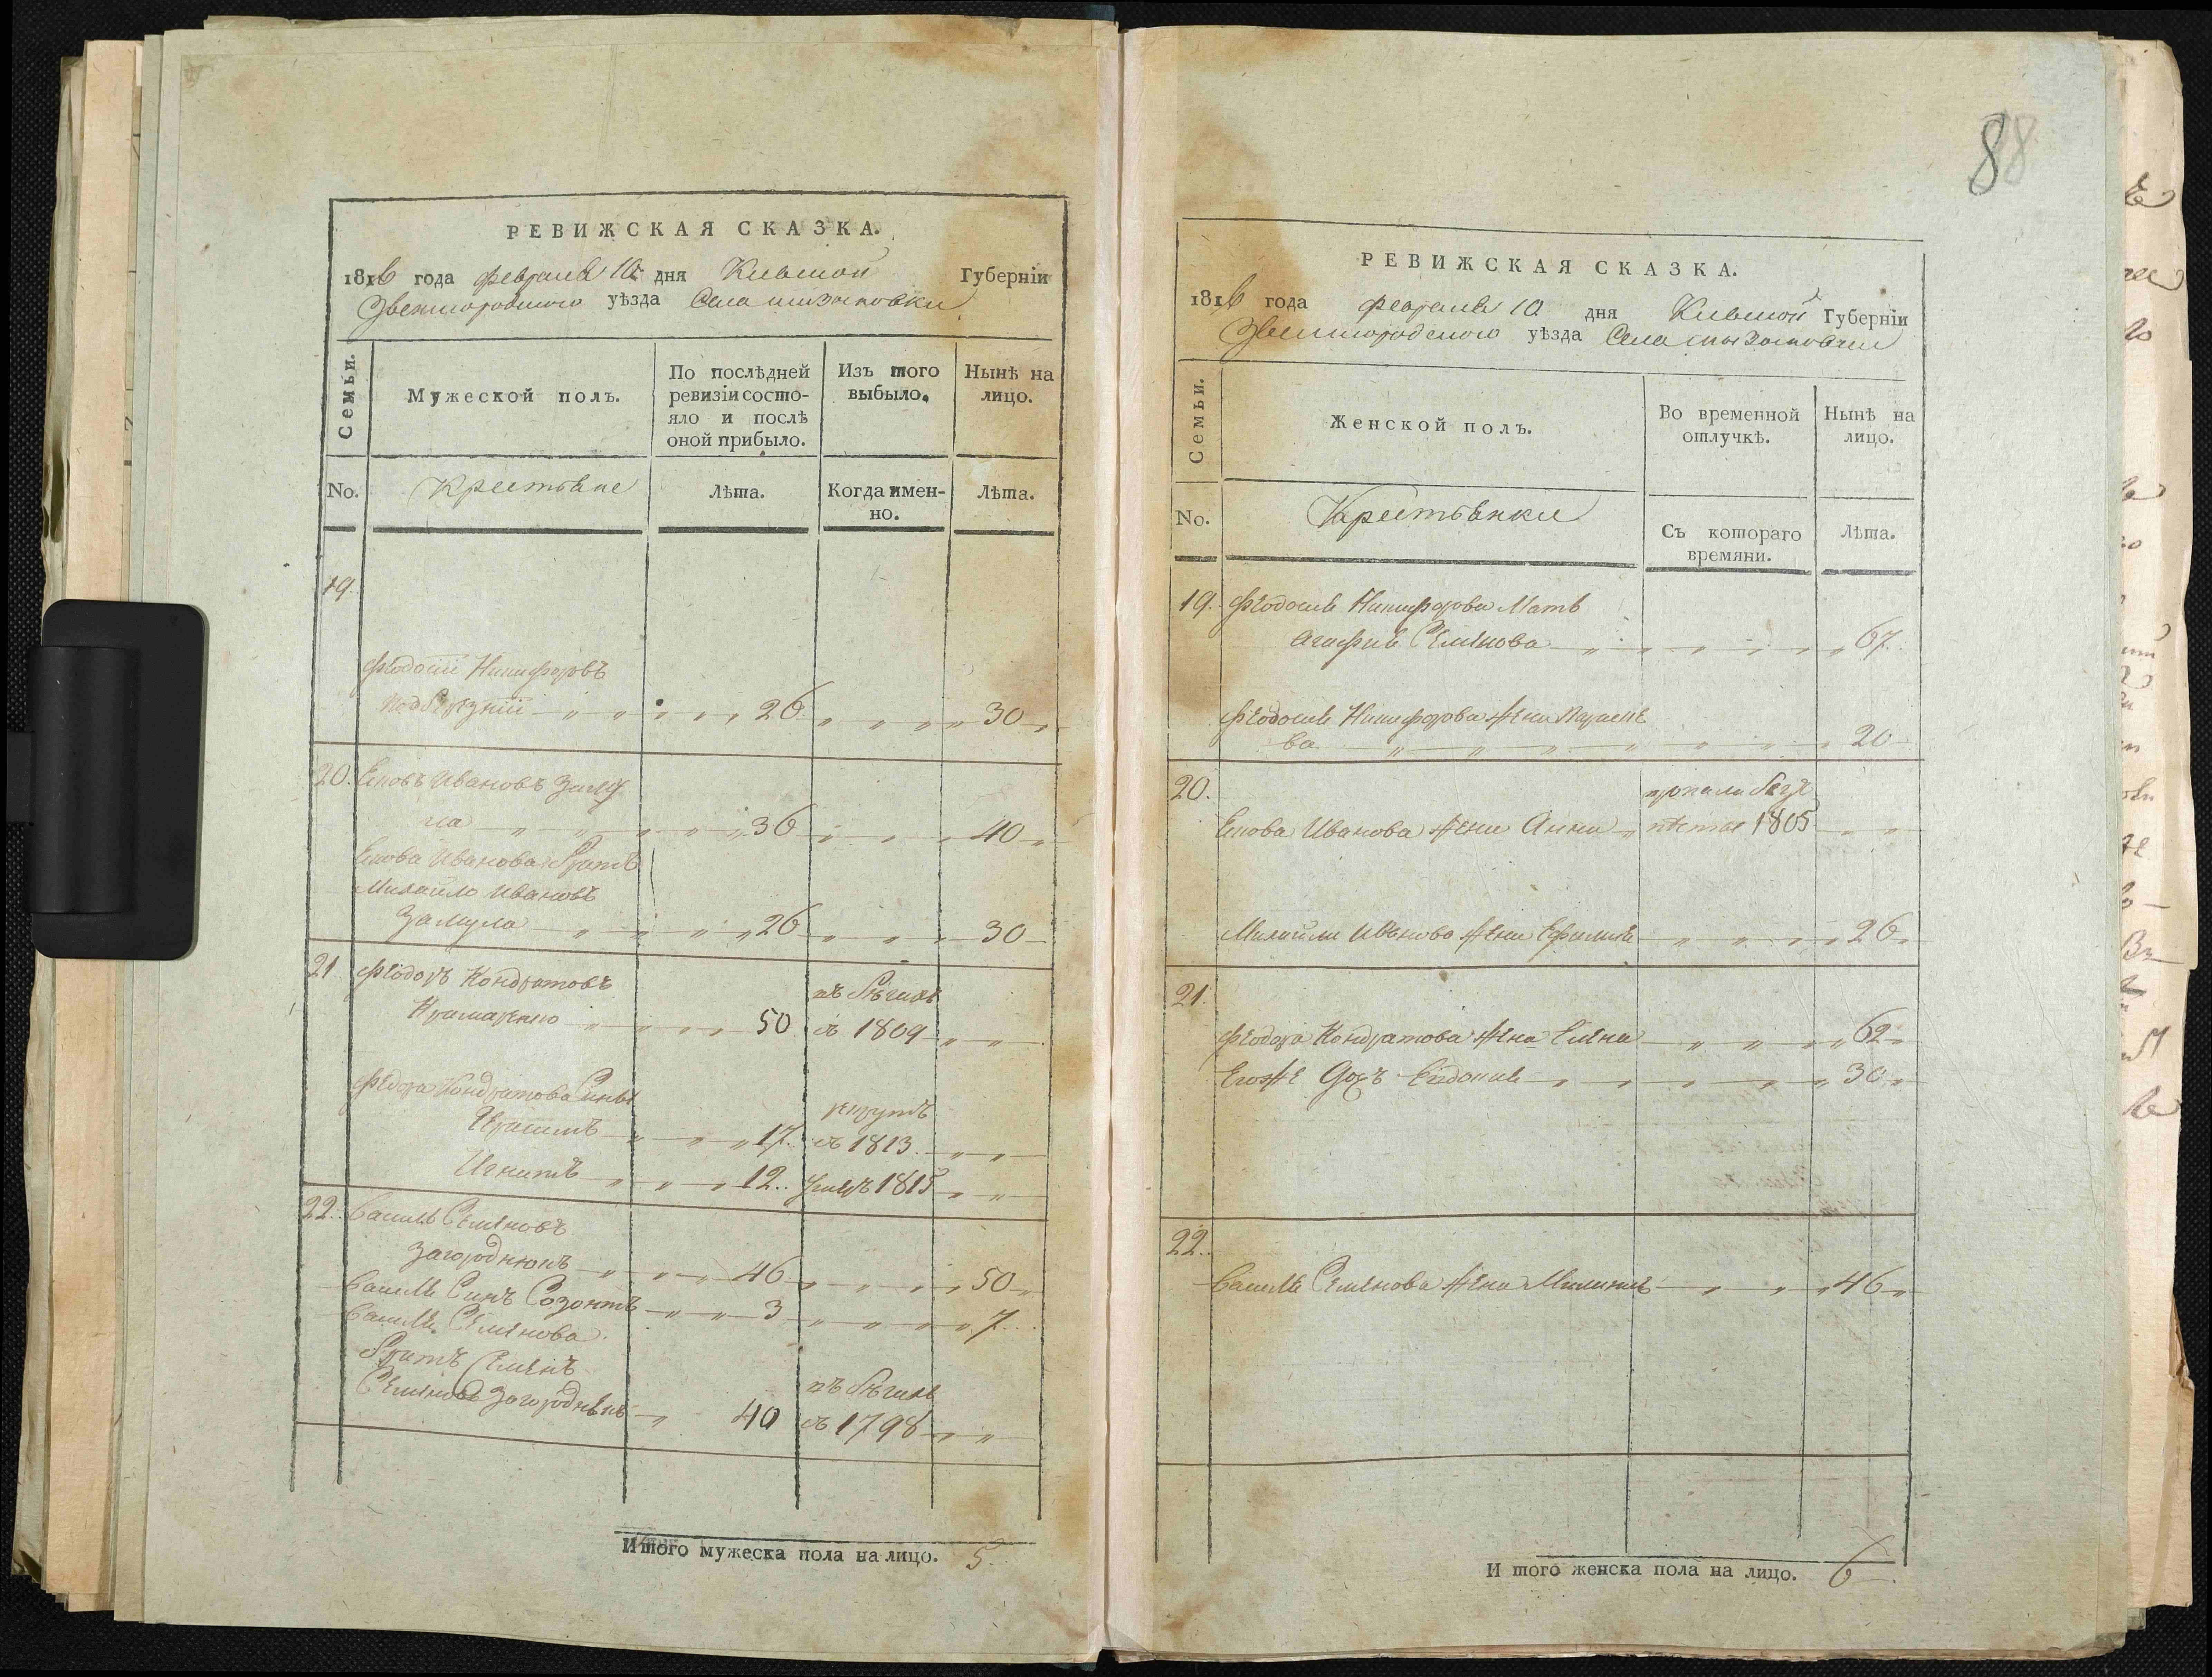 РЕВИЖСКАЯ СКАЗКА.
1816 года февраля 10 дня Киевской Губерніи
Звенигородского уѣзда Села
Семьи.
Мужеской полъ.
По послѣдней ревизіи состояло и послѣ оной прибыло.
Изъ того выбыло.
Нынѣ на лицо.
No.
Крестьяне
Лѣта.
Когда именно.
Лѣта.
19.
Феодосій Никифоровъ
Подберезній 26 30
20. Яковъ Ивановъ Заму
ла 36 40
Якова Иванова братъ
Михайло Ивановъ
Замула 26 30
21 Феодоръ Кондратовъ
Крамаренко 50 въ бѣгахъ въ 1809
Феодора Кондратова Сыны
Герасимъ 17. рекрутъ въ 1813.
Игнатъ 12. умеръ 1815
22. Василь Семеновъ
Загороднюкъ 46 50
Василя Сынъ Созонтъ 3 7
Василя Семенова
братъ Семенъ
Семеновъ 40 въ бѣгахъ въ 1798
Итого мужеска пола на лицо. 5.
88
РЕВИЖСКАЯ СКАЗКА.
1816 года февраля 10 дня Киевской Губерніи
Звенигородского уѣзда Села
Семьи.
Женской полъ.
Во временной отлучкѣ.
Нынѣ на лицо.
No.
Крестьянки
Съ котораго времяни.
Лѣта.
19. Феодосія Никифорова Мать
Агафия Семенова 67.
Феодосія Никифорова Жена Параске
ва 20
20.
Якова Иванова Жена Анна 1805
Михайла Иванова Жена 26
21.
Феодора Кондратова Жена Елена 62
Егожъ дочь 30
22.
Василя Семенова Жена 46
И того женска пола на лицо. 6